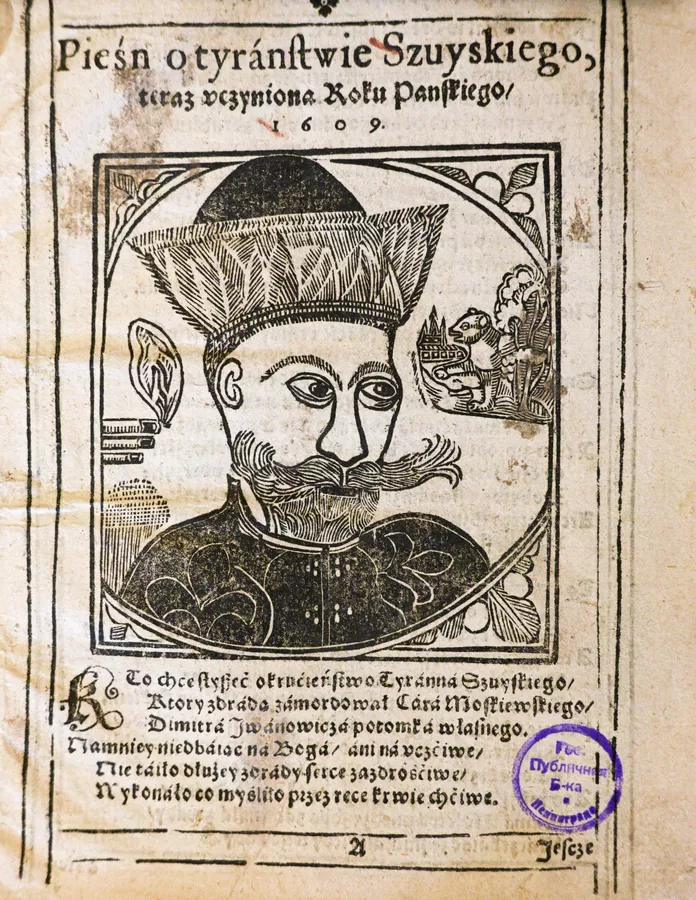 Pieśn o tyránſtwie Szuyskiego,
teraz vczyniona Roku Panſkiego/
1609.
KTo chce ſlyſzeć okrućieńſtwo Tyranná Szuyſkiego/
Ktory zdradą zámordował Cárá Moſkiewſkiego/
Dimitrá Jwánowiczá potomká właſnego.
Namniey niedbáiąc ná Bogá/ áni ná vczćiwe/
Nie táiło dłużey zdrády ſerce zazdrośćiwe/
Wykonáło co myśliło przez ręce krwie chćiwe.
A
Jeſcze
Гос.
Публичная
Б-ка
Ленинград